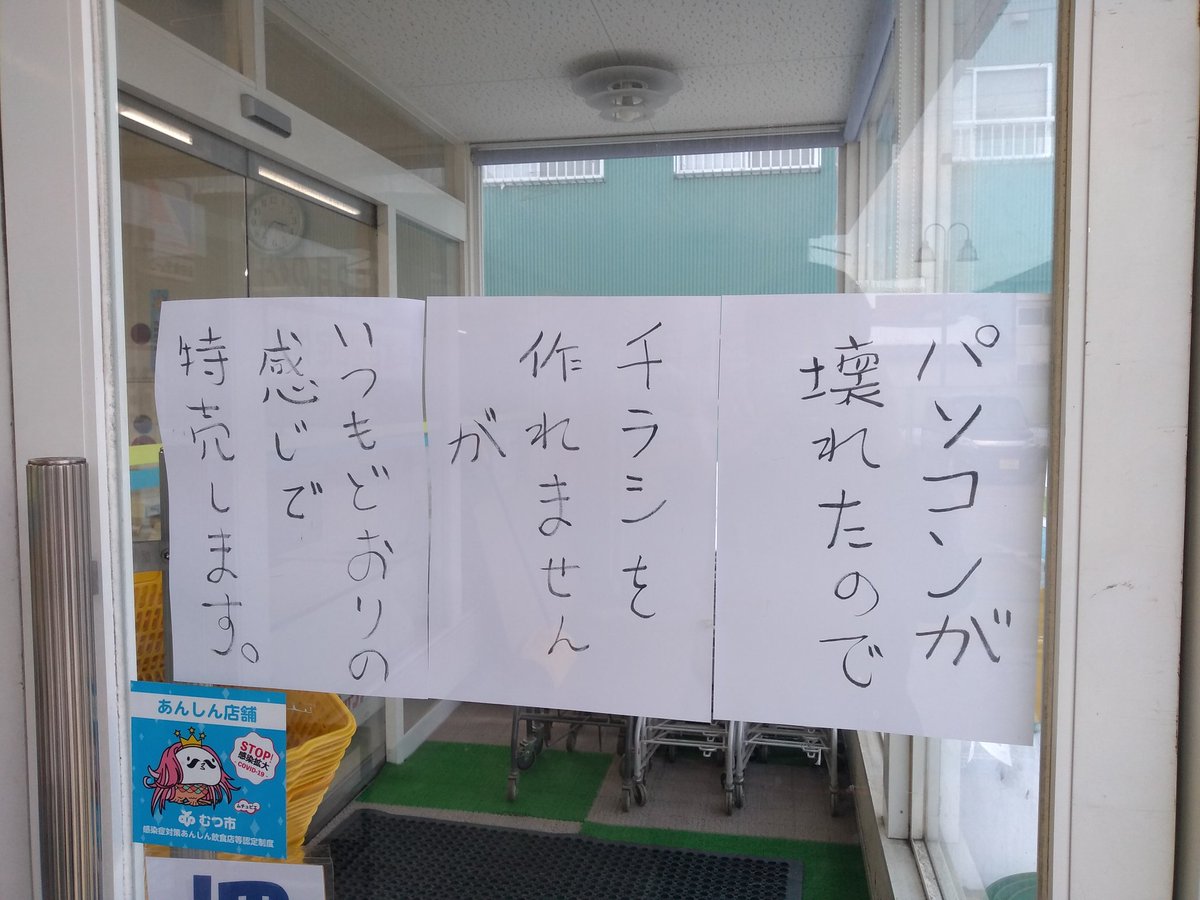 パソコンが
壊れたので
チラシを
作れません
が
いつもどおりの
感じで
特売します。
あんしん店舗
STOP!
感染拡大
COVID-19
ムチュピエ
むつ市
感染症対策あんしん飲食店等認定制度